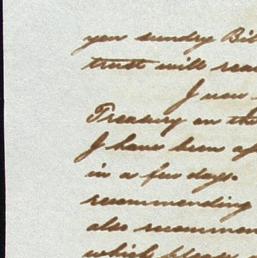 your sundry Bil
trust will rea
I now
Treasury on th
I have been af
in a few days.
recommending
also recommen
which please